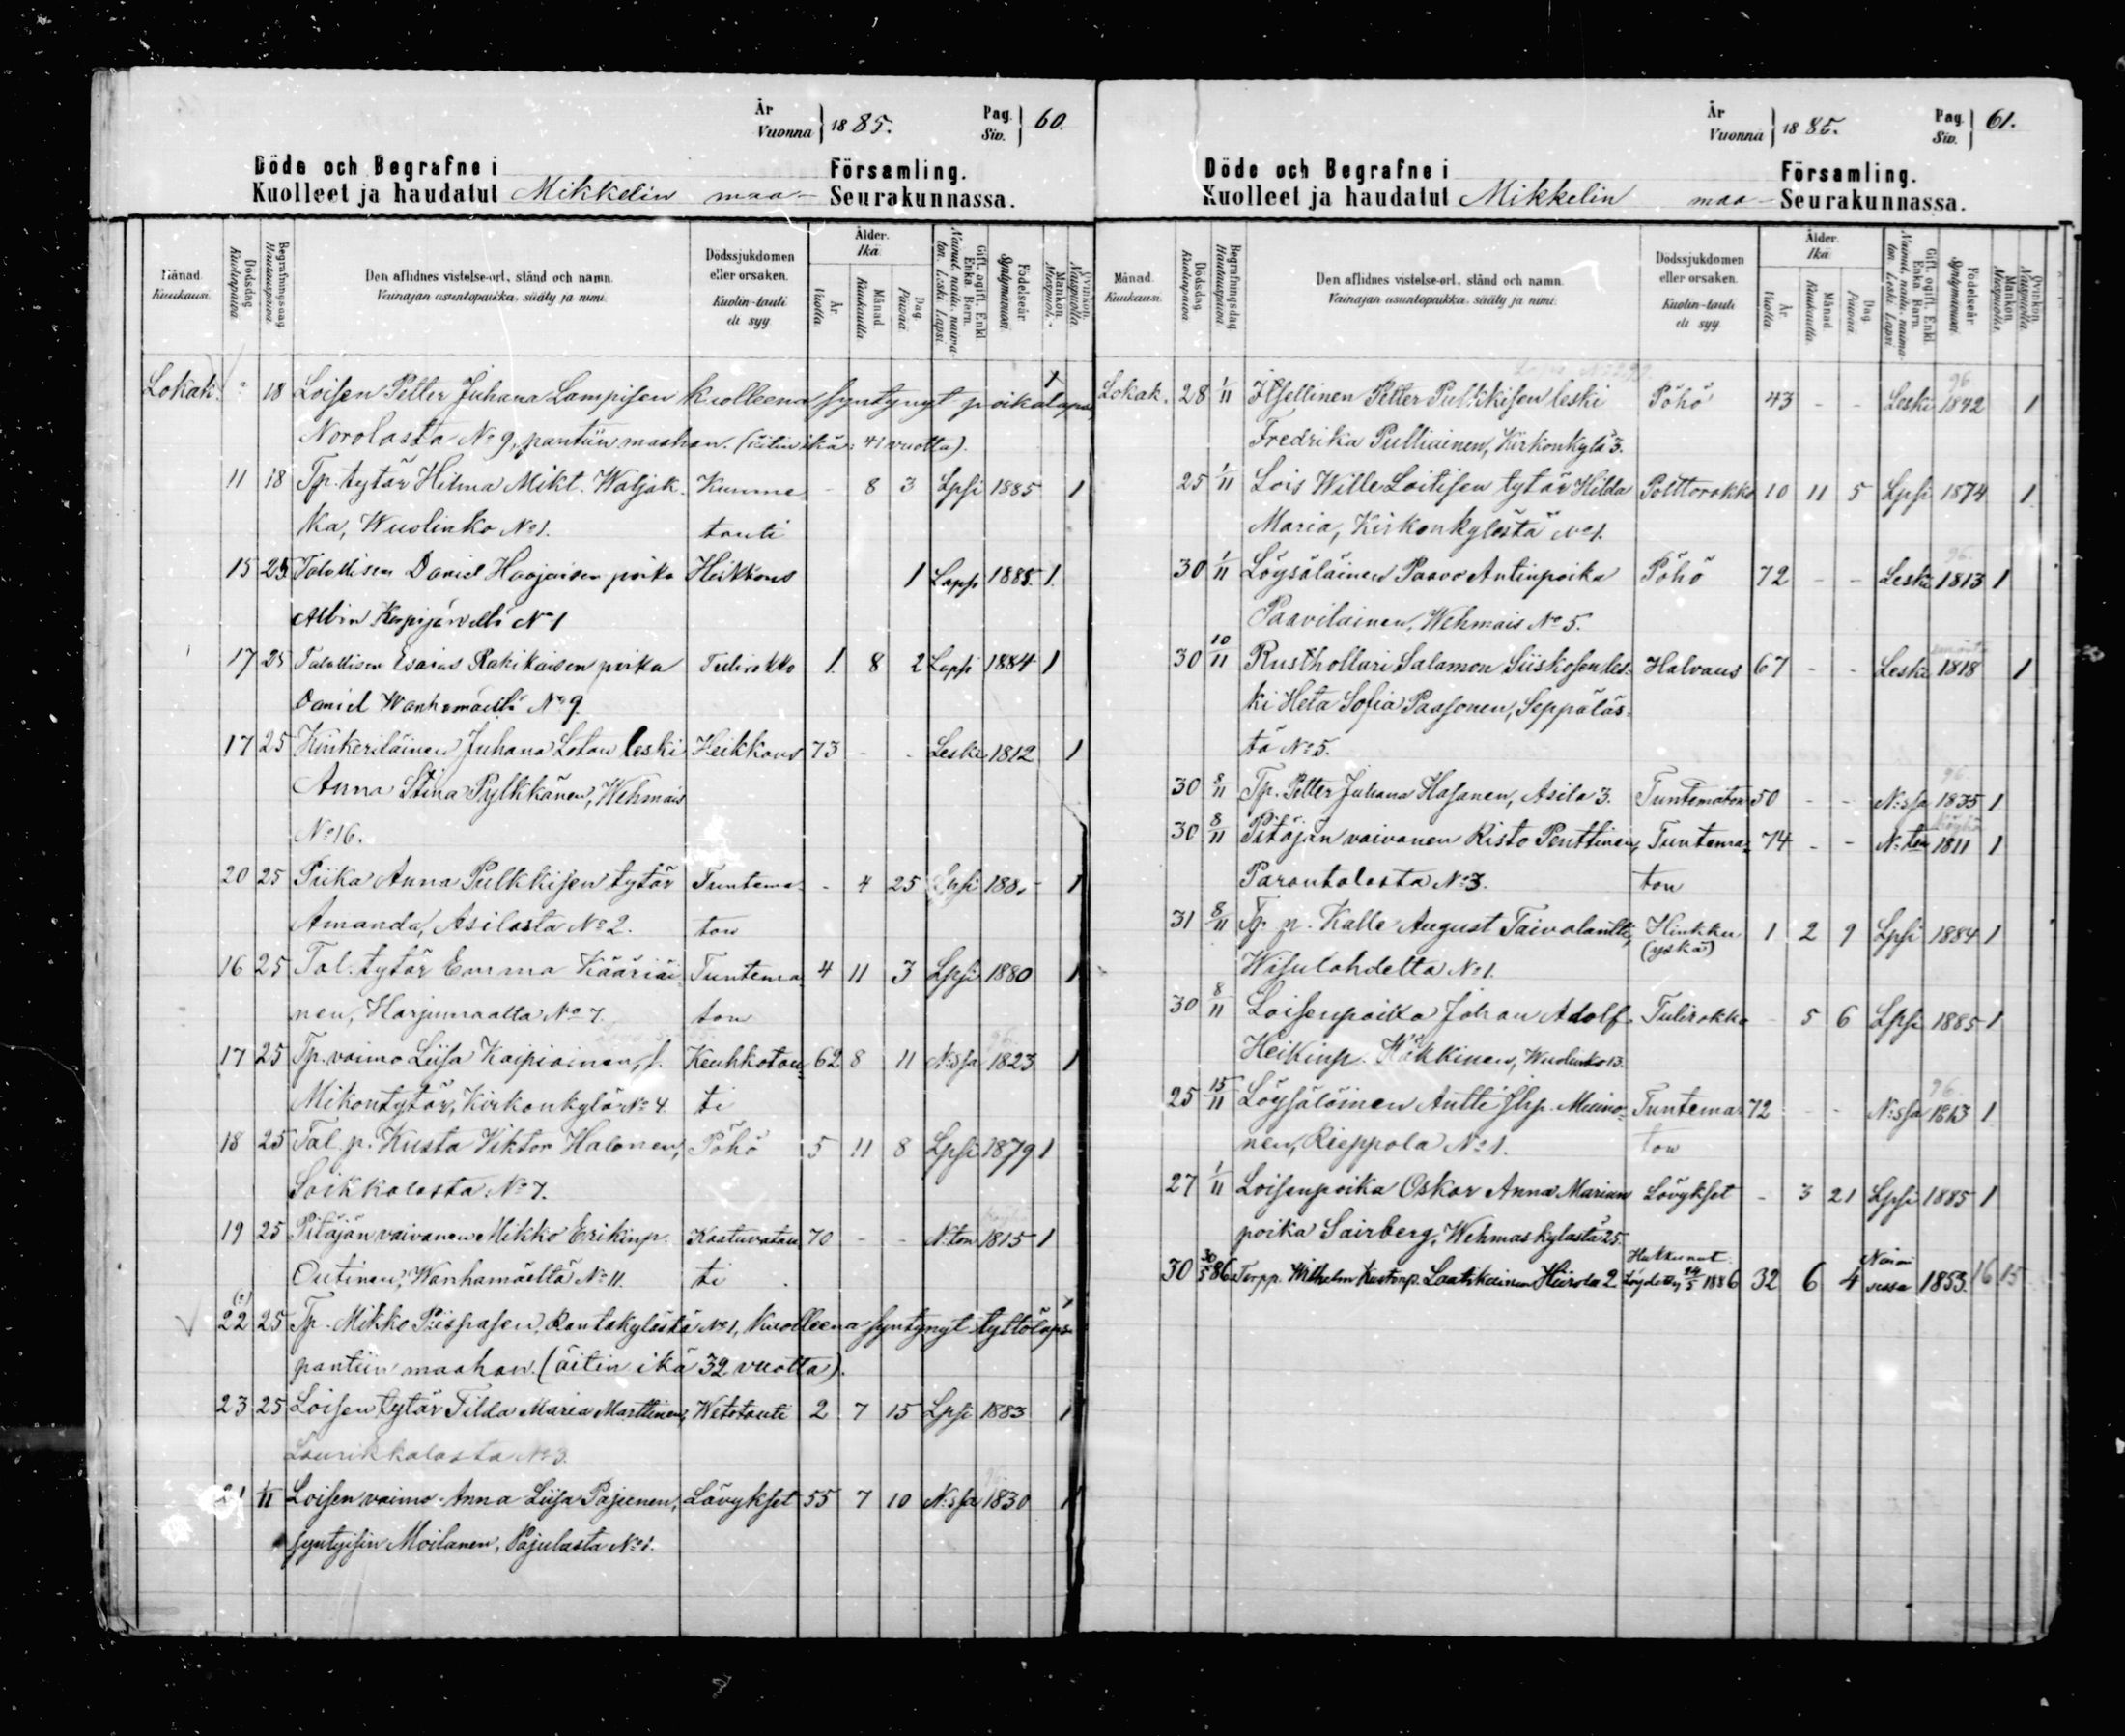 År
Vuonna } 1885. Pag. Siv. } 60.
Döde och Begrafne i Församling.
Kuolleet ja haudatut Mikkelin maa- Seurakunnassa.
Månad. Kuukausi. Dödsdag. Kuolinpäivä. Begrafningsdag. Hautauspäivä. Den aflidnes vistelse-ort, stånd och namn. Vainajan asuntopaikka, sääty ja nimi. Dödssjukdomen eller orsaken. Kuolin-tauti eli syy. Ålder. Ikä. År. Vuotta. Månad. Kuukautta. Dag. Päivää. Gift, ogift, Enkl. Enka, Barn. Födelseår. Syntymävuosi. Mankön. Miespuol. Qvinkön. Naispuolia.
Lokak. 18 Loisen Petter Juhana Lampisen kuolleena syntynyt poikalapsi
Norolasta No 9, pantiin maahan. (äitin ikä: 41 vuotta).
11 18 Tp. tytär Hilma Mikt. Waljak- Kurume - 8 3 Lpsi 1885 1
ka, Wuolinko No 1. tauti
15 25 Talollisen Daniel Haajaisen poika Heikkous 1 Lapsi 1885 1.
Albin No 1
17 25 Talollisen Esaias Rakikaisen poika Tulirokko 1. 8 2 Lapsi 1884 1
Daniel Wanhamäeltä No 9
17 25 Kinkeriläinen Juhana Lotan leski Heikkous 73 - - Leski 1812 1
Anna Stina Pylkkänen, Wehmais
No 16.
20 25 Piika Anna Pulkkisen tytär Tuntema- - 4 25 Lpsi 1 
Amanda, Asilasta No 2. ton
16 25 Tal. tytär Emma Kääriäi- Tuntema- 4 11 3 Lpsi 1880 1
nen, Harjumaalta No 7. ton
17 25 Tp. vaimo Liisa Kaipiainen, s. Keuhkotau- 62 8 11 N:ssa 1823 1
Mikontytär, Kirkonkylä No 4. ti
18 25 Tal. p. Kusta Viktor Halonen, Pöhö 5 11 8 Lpsi 1879 1
Soikkalasta No 7.
19 25 Pitäjän vaivanen Mikko Erikinp. Kaatuvatau- 70 - - N:ton 1815 1
Outinen, Wanhamäeltä No 11. ti
22 25 Tp. Mikko Piispasen, Rantakylästä No 1, Kuolleena syntynyt tyttölapsi
pantiin maahan. (äitin ikä 32 vuotta).
23 25 Loisen tytär Tilda Maria Marttinen, Wetotauti 2 7 15 Lpsi 1883 1
Laurikkalasta No 3.
21 1/11 Loisen vaimo Anna Liisa Pajunen, Lävykset 55 7 10 N:ssa 1830 1
syntyisin Moilanen, Pajulasta No 1.
År
Vuonna } 1885. Pag. Siv. } 61.
Döde och Begrafne i Församling.
Kuolleet ja haudatut Mikkelin maa- Seurakunnassa.
Månad. Kuukausi. Dödsdag. Kuolinpäivä. Begrafningsdag. Hautauspäivä. Den aflidnes vistelse-ort, stånd och namn. Vainajan asuntopaikka, sääty ja nimi. Dödssjukdomen eller orsaken. Kuolin-tauti eli syy. Ålder. Ikä. År. Vuotta. Månad. Kuukautta. Dag. Päivää. Gift, ogift, Enkl. Enka, Barn. Födelseår. Syntymävuosi. Mankön. Miespuolia. Qvinkön. Naispuolia.
Lokak. 28 1/11 Itsellinen Petter Pulkkisen leski Pöhö 43 - - Leski 1842 1
Fredrika Pulliainen, Kirkonkylä 3.
25 1/11 Lois Wille Laitisen tytär Hilda Polttorokko 10 11 5 Lpsi 1874 1
Maria, Kirkonkylästä No 1.
30 1/11 Löysäläinen Paavo Antinpoika Pöhö 72 - - Leski 1813 1
Paavilainen, Wehmais No 5.
30 10/11 Rusthollari Salamon Siiskosen les- Halvaus 67 - - Leski 1818 1
ki Heta Sofia Paasonen, Seppäläs-
tä No 5.
30 8/11 Tp. Petter Juhana Hasanen, Asila 3. Tuntematon 50 - - N:ssa 1835 1
30 8/11 Pitäjän vaivanen Risto Penttinen, Tuntema- 74 - - N:ton 1811 1
Parantalasta No 3. ton
31 8/11 Tp. p. Kalle August Taivalantti, Hinkku (yskä) 1 2 9 Lpsi 1884 1
Wisulahdelta No 1.
30 8/11 Loisenpoika Johan Adolf Tulirokko - 5 6 Lpsi 1885 1
Heikinp. Häkkinen, Wuolinko 13.
25 15/11 Löysäläinen Antti Jhp. Muino- Tuntema- 72 - - N:ssa 1813 1
nen, Rieppola No 1. ton
27 1/11 Loisenpoika Oskar Anna Marian Lävykset - 3 21 Lpsi 1885 1
poika Sairberg, Wehmaskylästä 25.
30 30/5 86 Torpp. Wilhelm Kustanp. Laatikainen Hiirola 2 Hukkunut. Löydetty 24/5 1886 32 6 4 Naimisessa 1853 16 15